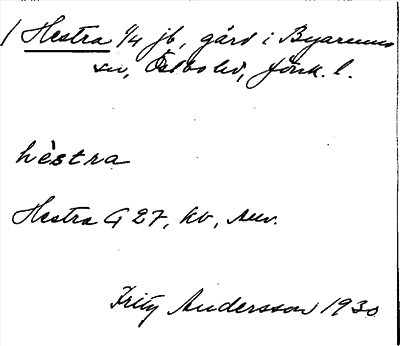 / Hestra 1/4 jb, gård i Byarums
sn, Östbo hd, Jönk. l.
hèstra
Hestra G 27, kb, Auv.
Fritz Andersson 1930